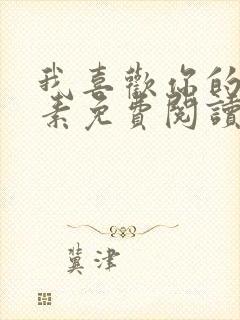 我喜歡你的
素免費閱讀
冀津